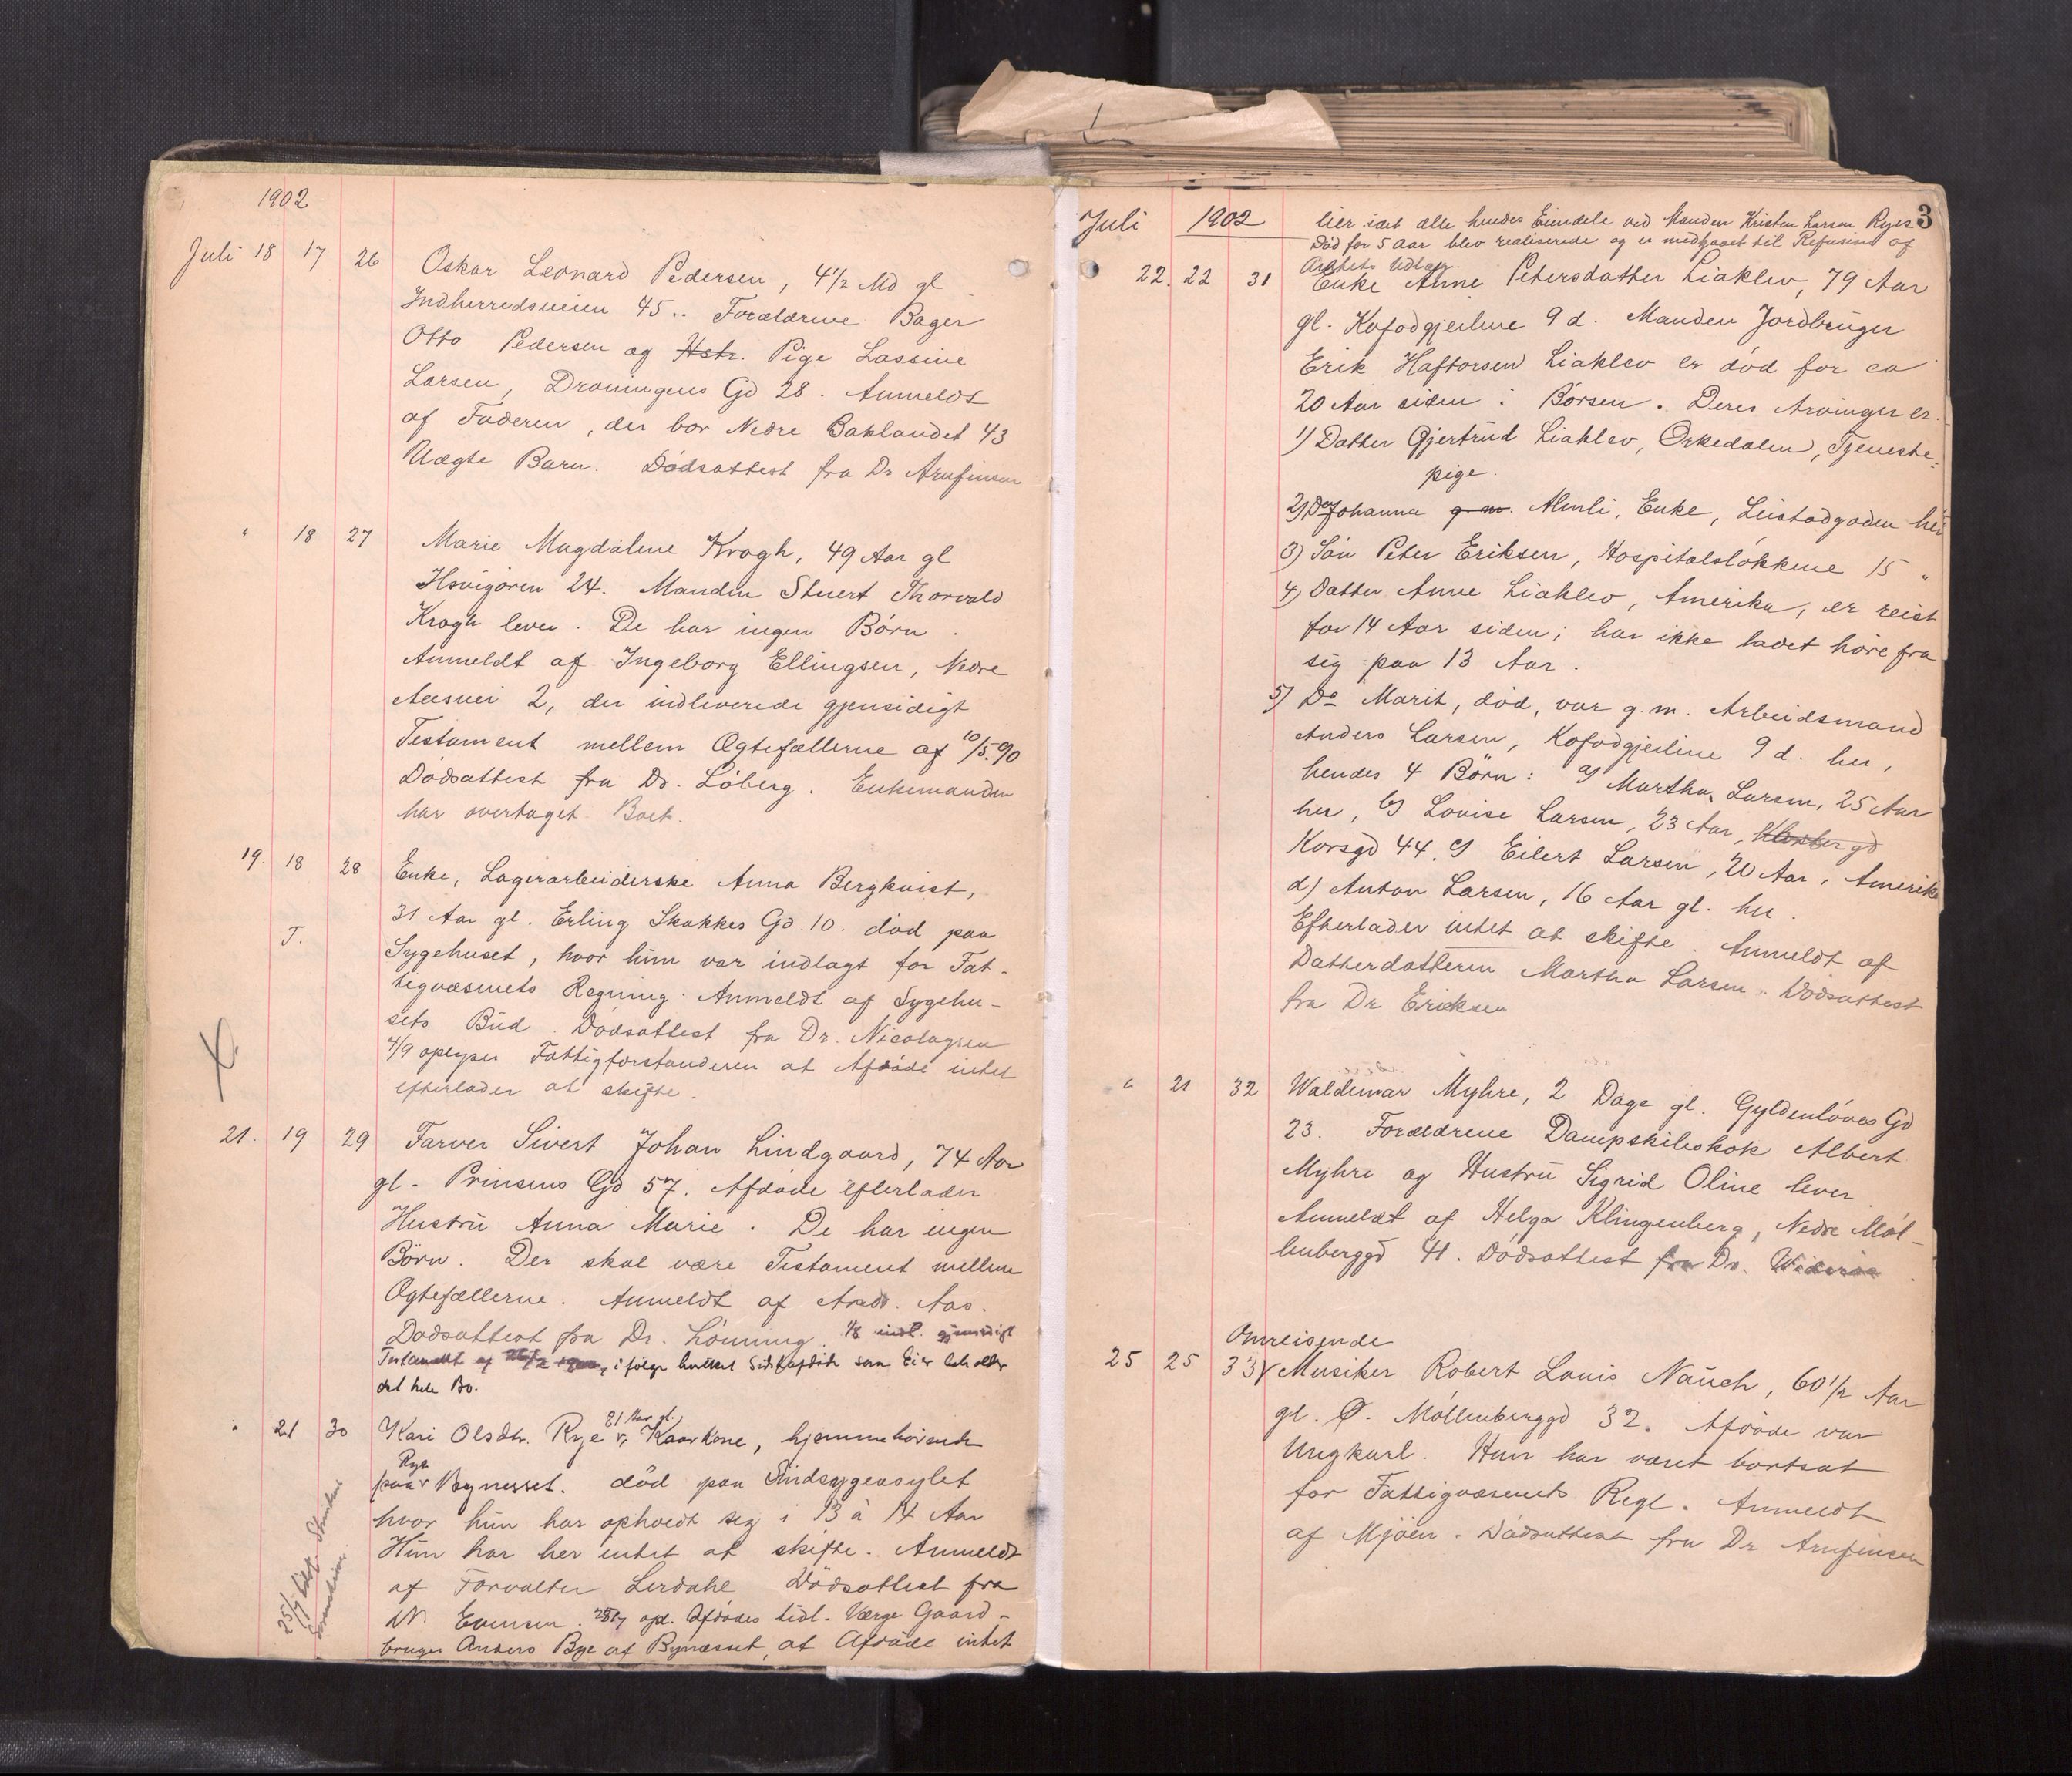 1902
Juli 18 17 26 Oskar Leonard Pedersen, 4 1/2 Md gl
Indherredsveien 45.. Forældrene Bager
Otto Pedersen og Hstr. Pige Lassine
Larsen, Dronningens Gd 28. Anmeldt
af Faderen, der bor Nedre Baklandet 43
Uægte Barn. Dödsattest fra Dr Arnfinsen
" 18 27 Marie Magdalene Krogh, 49 Aar gl
Ilsvigören 24. Manden Stuert Thorvald
Krogh lever. De har ingen Börn.
Anmeldt af Ingeborg Ellingsen, Nedre
Aasvei 2, der indleverede gjensidigt
Testament mellem Ægtefællerne af 10/5.90
Dödsattest fra Dr. Löberg. Enkemanden
har overtaget Boet.
19. 18 28 Enke, Lagerarbeiderske Anna Bergkvist,
31 Aar gl. Erling Skakkes Gd 10. död paa
T.
Sygehuset, hvor hun var indlagt for Fat-
tigvæsenets Regning. Anmeldt af Sygehu-
sets Bud. Dödsattest fra Dr. Nicolaysen
4/9 oplyser Fattigforstanderen at Afdöde intet
efterlader at skifte.
21. 19 29 Farver Sivert Johan Lindgaard, 74 Aar
gl. Prinsens Gd 57. Afdöde efterlader
Hustru Anna Marie. De har ingen
Börn. Der skal være Testament mellem
Ægtefællerne. Anmeldt af Aas.
Dödsattest fra Dr. Lönning. 1/8 indl. gjensidigt
Testament af i fölge hvilket Sidstafdöde som Eier beholder
det hele Bo.
" 21 30 Kari Olsdtr. Rye, 81 Aar gl. Kaarkone, hjemmehörende
paa Rye Bynesset. död paa Sindsygeasylet
hvor hun har opholdt sig i 13 à 14 Aar
Hun har her intet at skifte. Anmeldt
af Forvalter Lerdahl Dödsattest fra
Dr. Evensen. 25/7 opl. Afdödes tidl. Værge Gaard-
bruger Anders Bye af Bynæsset, at Afdöde intet
25/7 tilst. Strindens
3
Juli 1902
lier idet alle hendes Eiendele ved Manden Kristen Larsen Ryes
Död for 5 Aar blev realiserede og er medgaaet til Refusion af
Asylets Udlæg.
22. 22 31 Enke Anne Petersdatter Liaklev, 79 Aar
gl. Kofodgjeilene 9 d. Manden Jordbruger
Erik Haftorsen Liaklev er död for ca
20 Aar siden i Börsen. Deres Arvinger er.
1) Datter Gjertrud Liaklev, Orkedalen, Tjeneste-
pige.
2) Do Johanna g. m. Almli, Enke, Leistadgaden her
3) Sön Peter Eriksen, Hospitalslökkene 15 "
4) Datter Anne Liaklev, Amerika, er reist
for 14 Aar siden; har ikke ladet höre fra
sig paa 13 Aar.
5) Do Marit, död, var g. m. Arbeidsmand
Anders Larsen, Kofodgjeilene 9 d. her,
hendes 4 Börn: a) Martha Larsen, 25 Aar
her, b) Lovise Larsen, 23 Aar, Klostergd
Korsgd 44. c) Eilert Larsen, 20 Aar, Amerika
d) Anton Larsen, 16 Aar gl. her.
Efterlader intet at skifte. Anmeldt af
Datterdatteren Martha Larsen. Dödsattest
fra Dr Eriksen
" 21 32 Waldemar Myhre, 2 Dage gl. Gyldenlöves Gd
23. Forældrene Dampskibskok Albert
Myhre og Hustru Sigrid Oline lever
Anmeldt af Helga Klingenberg, Nedre Möl-
lenberggd 41. Dödsattest fra Dr.
Omreisende
25 25 33 Musiker Robert Louis Nauch, 60 1/2 Aar
gl. Ø. Möllenberggd 32. Afdöde var
Ungkarl. Han har været bortsat
for Fattigvæsenets Regl. Anmeldt
af Mjöen. Dödsattest fra Dr Arnfinsen